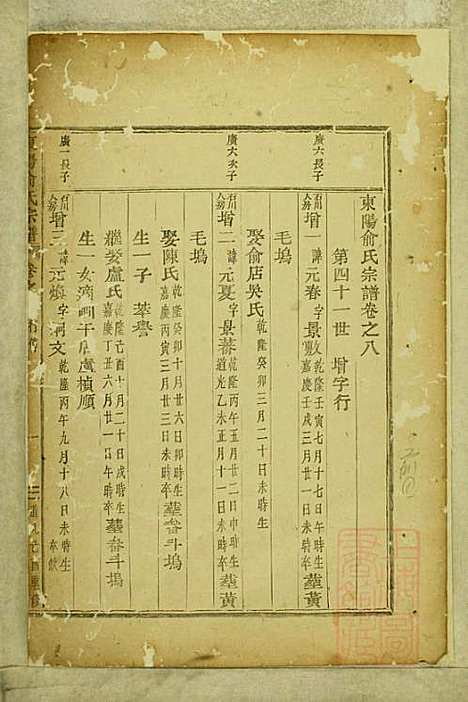 東陽俞氏宗譜卷之八
第四十一世 增字行
廣六長子
增一 諱元春 字景敷 乾隆壬寅七月十七日午時生 嘉慶壬戌三月廿一日未時卒 葬黃
毛塢
娶俞店吳氏 乾隆癸卯三月二十日未時生
廣六次子
增二 諱元夏 字景蕃 乾隆丙午五月廿二日申時生 道光乙未正月十一日未時卒 葬黃
毛塢
娶陳氏 乾隆癸卯十月廿六日卯時生 嘉慶丙寅三月廿三日未時卒 葬畚斗塢
生一子 萃譽
繼娶盧氏 乾隆己酉十月二十日戌時生 丁丑六月廿一日午時卒 葬畚斗塢
生一女 適 盧楨順
廣一長子
增三 諱元煥 字 文 乾隆丙午九月十八日未時生 卒缺
東陽俞氏宗譜 卷之